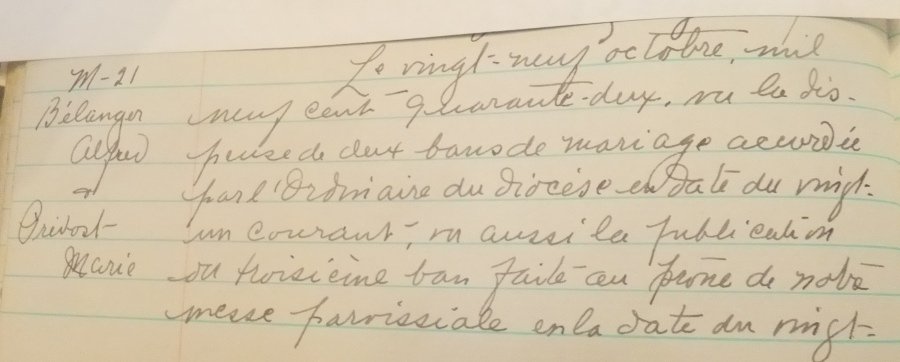 M-21
Bélanger
Alfred
&
Prévost
Marie
Le vingt-neuf octobre, mil
neuf cent quarante-deux, vu la dis-
pense de deux bans de mariage accordée
par l'Ordinaire du diocèse en date du vingt-
un courant, vu aussi la publication
du troisième ban faite au prône de notre
messe paroissiale en la date du vingt-